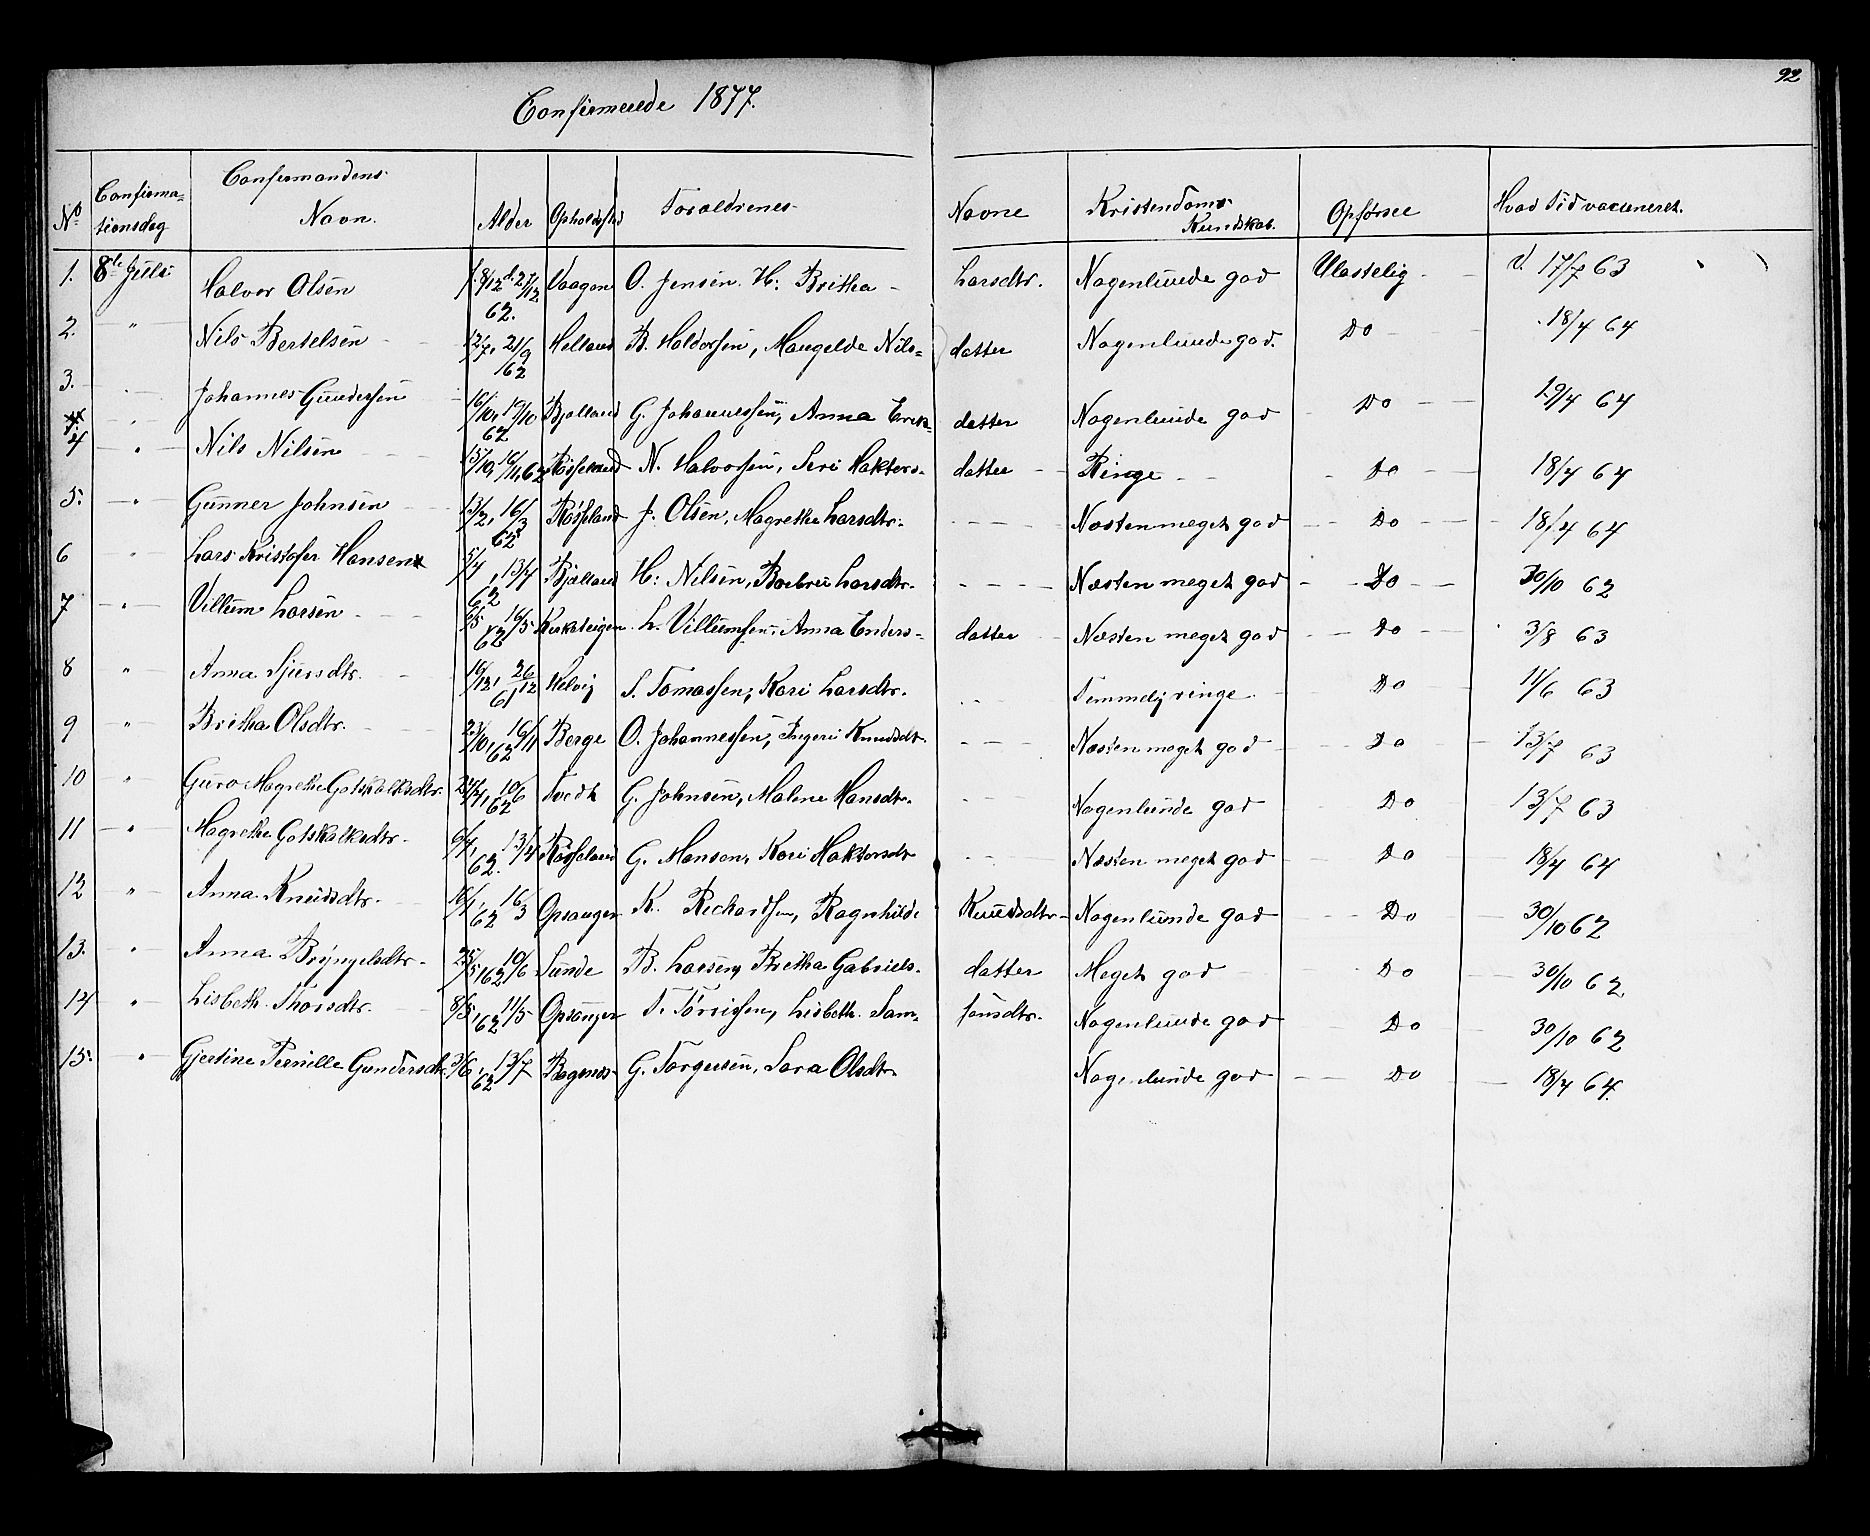 92
Confirmerede 1877.
No Confirma= tionsdag Confirmandens Navn. Alder Opholdssted Foraldrenes Navne Kristendoms Kundskab. Opførsel Hvad Tid vacsineret.
1. 8de Juli Halvor Olsen f. 8/12 d. 27/12 62. Vaagen O. Jensen. H: Britha Larsdtr. Nogenlunde god Ulastelig V. 17/7 63
2. " Nils Bertelsen 12/7, 21/9 62 Helland B. Haldorsen, Maugelde Nils= datter Nogenlunde god. Do 18/4 64
3. " Johannes Gundersen 16/10, 19/10 62 Bjølland G. Johannessen, Anna Erick= datter Nogenlunde god Do 19/4 64
4 " Nils Nilsen 15/10, 16/11, 62 Røsseland N. Halvorsen, Seri Haktors= datter Ringe Do 18/4 64
5. " Gunner Johnsen 13/2, 16/3 62 Røsseland J. Olsen, Magrethe Larsdtr. Næsten meget god Do 18/4 64
6 " Lars Kristofer Hansen 5/4, 13/4 62 Bjølland H: Nilsen, Barbru Larsdtr. Næsten meget god Do 30/10 62
7 " Villum Larsen 6/5, 16/5 62 Kirksteigen L. Villumsen, Anna Enders= datter Næsten meget god Do 3/8 63
8 " Anna Sjursdtr. 16/12, 26/12 61 Helvig S. Tomassen, Kari Larsdtr. Temmelig ringe Do 11/6 63
9 " Britha Olsdtr. 23/10, 16/11 62 Berge O. Johannessen, Ingeri Knudsdtr. Næsten meget god Do 13/7 63
10 " Guro Magrethe Gotskalksdtr. 25/4, 10/6 62 Tvedt G. Johnsen, Malene Hansdtr. Nogenlunde god Do 13/7 63
11 " Magrethe Gotskalksdtr. 6/4, 13/4 62. Røsseland G. Monsen, Kari Haktorsdtr Næsten meget god Do 18/4 64
12 " Anna Knudsdtr. 16/1, 16/3 62 Opsanger K. Richardsen, Ragnhilde Knudsdtr. Nogenlunde god Do 30/10 62
13. " Anna Bryngelsdtr. 25/5, 10/6 62 Sunde B. Larsen, Britha Gabriels= datter Meget god Do 30/10 62
14 " Lisbeth Thorsdtr. 8/5, 11/5 62 Opsanger T. Torrisen, Lisbeth Sam= sonsdtr. Nogenlunde god Do 30/10 62
15. " Gjertine Pernille Gundersdtr. 3/6, 13/7 62 Bogenes G. Torgersen, Sara Olsdtr. Nogenlunde god Do 18/4 64.